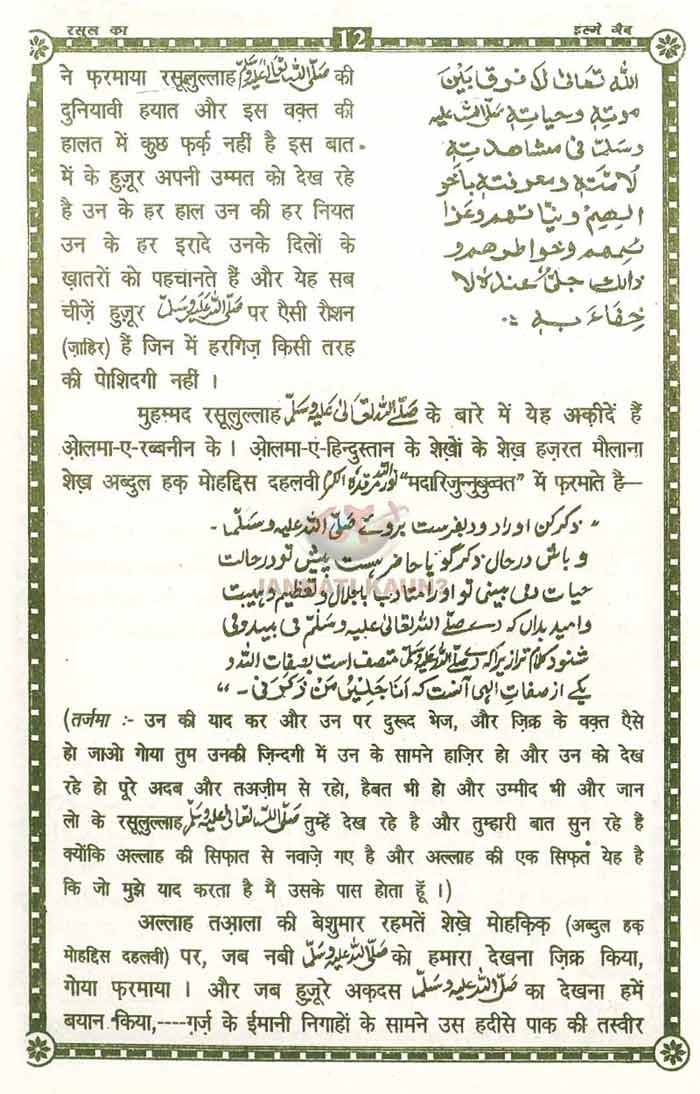 रसूल का 12 इल्मे ग़ैब
ने फ़रमाया रसूलुल्लाह صَلَّى اللّٰهُ تَعَالٰى عَلَيْهِ وَسَلَّم की
दुनियावी हयात और इस वक़्त की
हालत में कुछ फ़र्क़ नहीं है इस बात
में के हुज़ूर अपनी उम्मत को देख रहे
है उन के हर हाल उन की हर नियत
उन के हर इरादे उनके दिलों के
ख़ातरों को पहचानते हैं और यह सब
चीज़ें हुज़ूर صَلَّى اللّٰهُ عَلَيْهِ وَسَلَّم पर ऐसी रौशन
(ज़ाहिर) हैं जिन में हरगिज़ किसी तरह
की पोशिदगी नहीं ।
الله تعالى لا فرق بين
موته وحياته صلى الله عليه
وسلم فى مشاهدته
لامته ومعرفته باحو
الهم ونياتهم وعزا
ئمهم وخواطرهم و
ذالك جلى عنده لا
خفاء به ۔
मुहम्मद रसूलुल्लाह صَلَّى اللّٰهُ تَعَالٰى عَلَيْهِ وَسَلَّم के बारे में येह अक़ीदें हैं
ओ़लमा-ए-रब्बनीन के । ओ़लमा-ए-हिन्दुस्तान के शेख़ों के शेख़ हज़रत मौलाना
शेख़ अब्दुल हक़ मोहद्दिस दहलवी "मदारिजुन्नुबुव्वत" में फ़रमाते है—
" ذکر کن اور ا و درود بفرست بروئے صلّی اللہ علیہ وسلّم ۔
و باش در حال ذکر گویا حاضر هست پیش تو در حالت
حیات و می بینی تو اورا متادب باجلال و تعظیم و ہیبت
و امید بداں کہ وے صلّی اللہ تعالیٰ علیہ وسلّم می بیند و می
شنود کلام ترا زیرا کہ وے صلّی اللہ علیہ وسلّم متصف است بصفات اللہ و
یکے از صفات الٰہی آنست کہ اَنَا جَلِیْسُ مَنْ ذَکَرَنِیْ ۔ "
(तर्जमा :- उन की याद कर और उन पर दुरूद भेज, और ज़िक्र के वक़्त ऐसे
हो जाओ गोया तुम उनकी ज़िन्दगी में उन के सामने हाज़िर हो और उन को देख
रहे हो पूरे अदब और तअज़ीम से रहो, हैबत भी हो और उम्मीद भी और जान
लो के रसूलुल्लाह صَلَّى اللّٰهُ تَعَالٰى عَلَيْهِ وَسَلَّم तुम्हें देख रहे है और तुम्हारी बात सुन रहे हैं
क्योंकि अल्लाह की सिफ़ात से नवाज़े गए है और अल्लाह की एक सिफ़त येह है
कि जो मुझे याद करता है मै उसके पास होता हूँ ।)
अल्लाह तआला की बेशुमार रहमतें शेख़े मोहक़िक़ (अब्दुल हक़
मोहद्दिस दहलवी) पर, जब नबी صَلَّى اللّٰهُ عَلَيْهِ وَسَلَّم को हमारा देखना ज़िक्र किया,
गोया फ़रमाया । और जब हुज़ूरे अक़दस صَلَّى اللّٰهُ عَلَيْهِ وَسَلَّم का देखना हमें
बयान किया,----ग़र्ज़ के ईमानी निगाहों के सामने उस हदीसे पाक की तस्वीर
JANNATI KAUN?